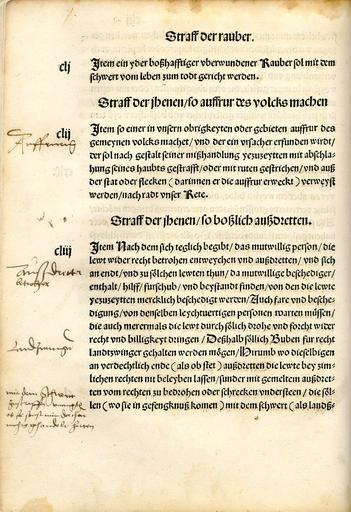 Straff der rauber.
clj
Item ein yder boßhafftiger vberwundener Rauber sol mit dem
schwert vom leben zum todt gericht werden.
Straff der jhenen/so auffrur des volcks machen
clij
Item so einer in vnsern obrigkeyten oder gebieten auffrur des
gemeynen volcks machet/vnd der ein vrsacher erfunden wirdt/
der sol nach gestalt seiner mißhandlung yezuzeyten mit abschla=
hung seines haubts gestrafft/oder mit ruten gestrichen/vnd auß
der stat oder flecken (darinnen er die auffrur erweckt) verweyst
werden/nach radt vnser Rete.
Straff der jhenen/so boßlich außdretten.
cliij
Item Nach dem sich teglich begibt/das mutwillig person/die
lewt wider recht betrohen entweychen vnd außdretten/vnd sich
an endt/vnd zu sölchen lewten thun/da mutwillige beschediger/
enthalt/hilff/furschub/vnd beystandt finden/von den die lewte
yezuzeytten mercklich beschedigt werden/Auch fare vnd besche=
digung/von denselben leychtuertigen personen warten müssen/
die auch merermals die lewt durch sölich drohe vnd forcht wider
recht vnd billigkeyt dringen/Deßhalb sölich Buben fur recht
landtzwinger gehalten werden mögen/Hirumb wo dieselbigen
an verdechtlich ende (als obstet) außdretten die lewte bey zim=
lichen rechten nit beleyben lassen/sunder mit gemeltem außdret=
ten vom rechten zu bedrohen oder schrecken vndersteen/die söl=
len (wo sie in gefengknuß komen) mit dem schwert (als landtß=